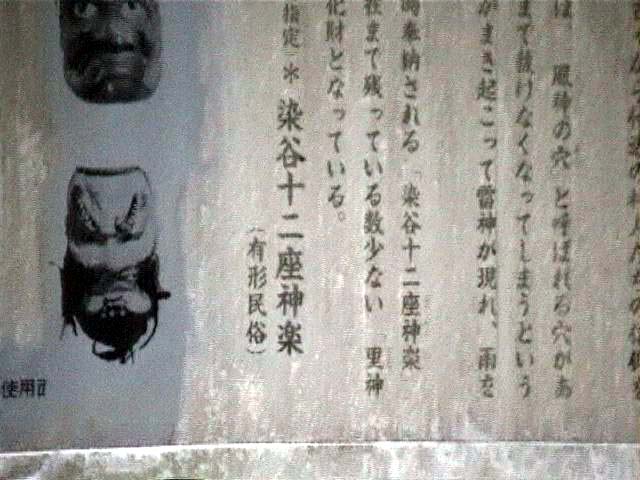 は 風神の穴 と呼ばれる穴があ
まで抜けなくなってしまうという
がまき起こって雷神が現れ、雨を
奉納される 「染谷十二座神楽
在まで残っている数少ない 里神
化財となっている。
指定 * 染谷十二座神楽
(有形民俗)
使用面